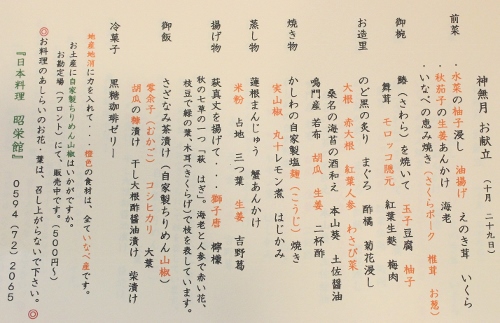 神無月 お献立 (十月 二十九日)
前菜
・水菜の柚子浸し 油揚げ えのき茸 いくら
・秋茄子の生姜あんかけ 海老
・いなべの恵み焼き(さくらポーク 椎茸 お葱)
御椀
鰆(さわら)を焼いて 玉子豆腐 柚子
舞茸 モロッコ隠元 紅葉生麩 梅肉
お造里
のど黒の炙り まぐろ 酢橘 菊花浸し
大根 赤大根 紅葉人参 わさび菜
桑名の海苔の酒和え 本山葵 土佐醤油
鳴門産 若布 胡瓜 生姜 二杯酢
焼き物
かしわの自家製塩麹(こうじ)焼き
実山椒 丸十レモン煮 はじかみ
蒸し物
蓮根まんじゅう 蟹あんかけ
米粉 占地 三つ葉 生姜 吉野葛
揚げ物
萩真丈を揚げて・・ 獅子唐 檸檬
秋の七草の一つ「萩 はぎ」。海老と人参で赤い花、
枝豆で緑の葉、木耳(きくらげ)で枝を表しています。
御飯
さざなみ茶漬け(自家製ちりめん山椒)
零余子(むかご) コシヒカリ 大葉
胡瓜の糠漬け 干し大根酢醤油漬け 柴漬け
冷菓子
黒糖珈琲ゼリー
地産地消に力を入れて・・・橙色の食材は、全ていなべ産です。
お土産に自家製ちりめん山椒はいかがですか。
お勘定場(フロント)にて、販売中です。(500円〜)
◎お料理のあしらいのお花、葉は、召し上がらないで下さい。◎
『日本料理 昭栄館』 0594(72)2065